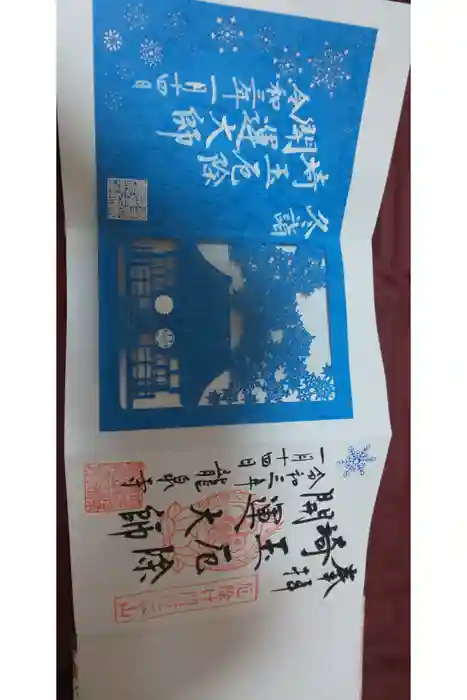 冬詣
埼玉厄除
開運大師
令和三年
一月十四日
奉拝
埼玉厄除
開運大師
令和三年
一月十四日
龍泉寺